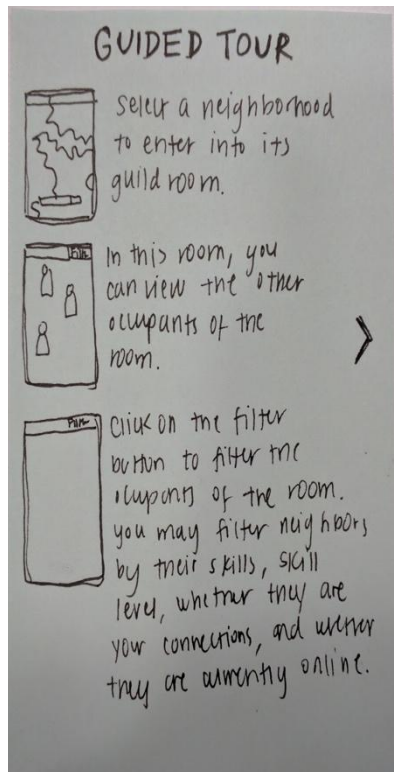 GUIDED TOUR
Select a neighborhood
to enter into its
guild room.
Filtr
In this room, you
can view the other
occupants of the
room.
Filtr
Click on the filter
button to filter the
occupants of the room.
you may filter neighbors
by their skills, skill
level, whether they are
your connections, and whether
they are currently online.